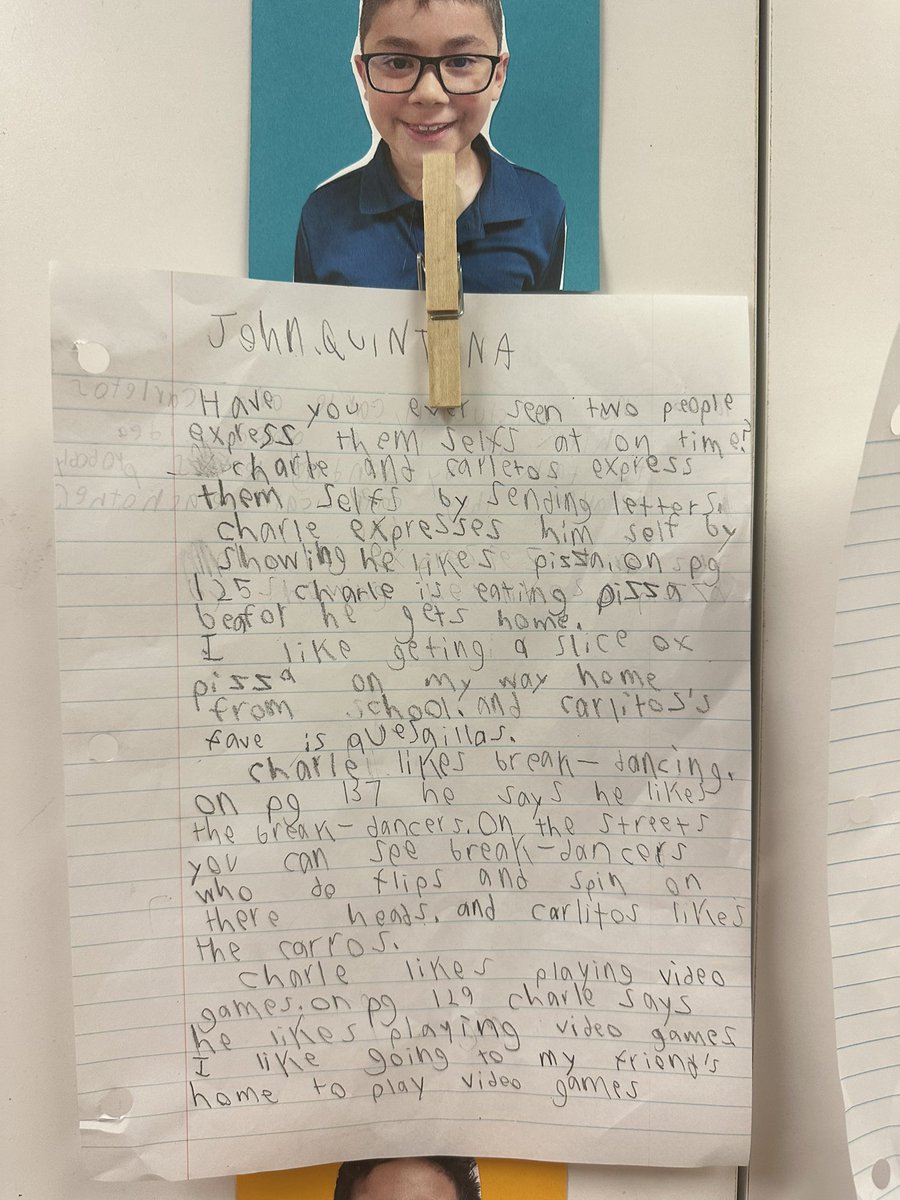 John.QUINT NA
Have you ever seen two people
express them selfs at on time?
charle and carletos express
them selfs by sending letters.
charle expresses him self by
showing he likes pizza, on pg
125 charle is eating pizza
beafor he gets home.
I like geting a slice ox
pizza on my way home
from school. and carlitos's
fave is quesaillas.
charle likes break-dancing.
on pg 137 he says he likes
the break-dancers. On the streets
you can see break-dancers
who do flips and spin on
there heads. and carlitos likes
the carros.
charle likes playing video
games. on pg 129 charle says
he likes playing video games
I like going to my friend's
home to play video games